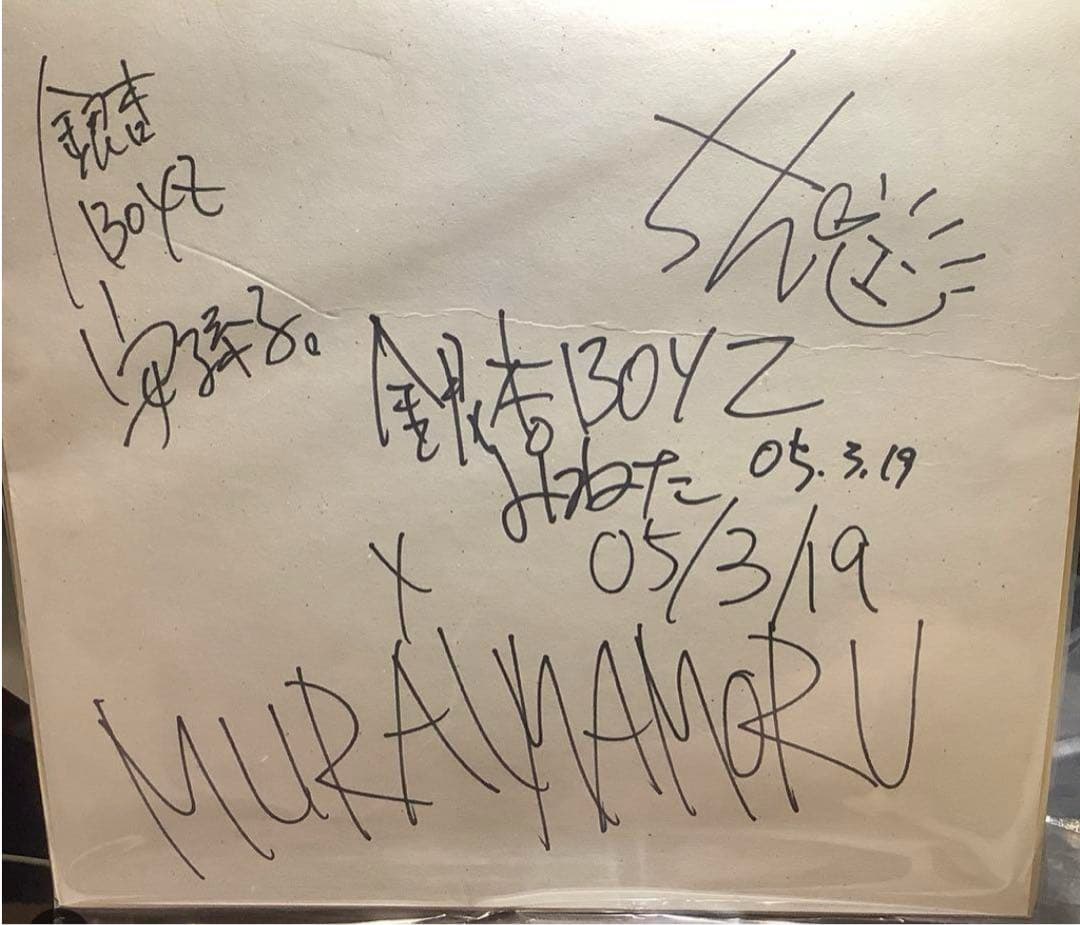 銀杏
BOYZ
安孫子。
銀杏BOYZ
みねた 05.3.19
05/3/19
MURAIMAMORU